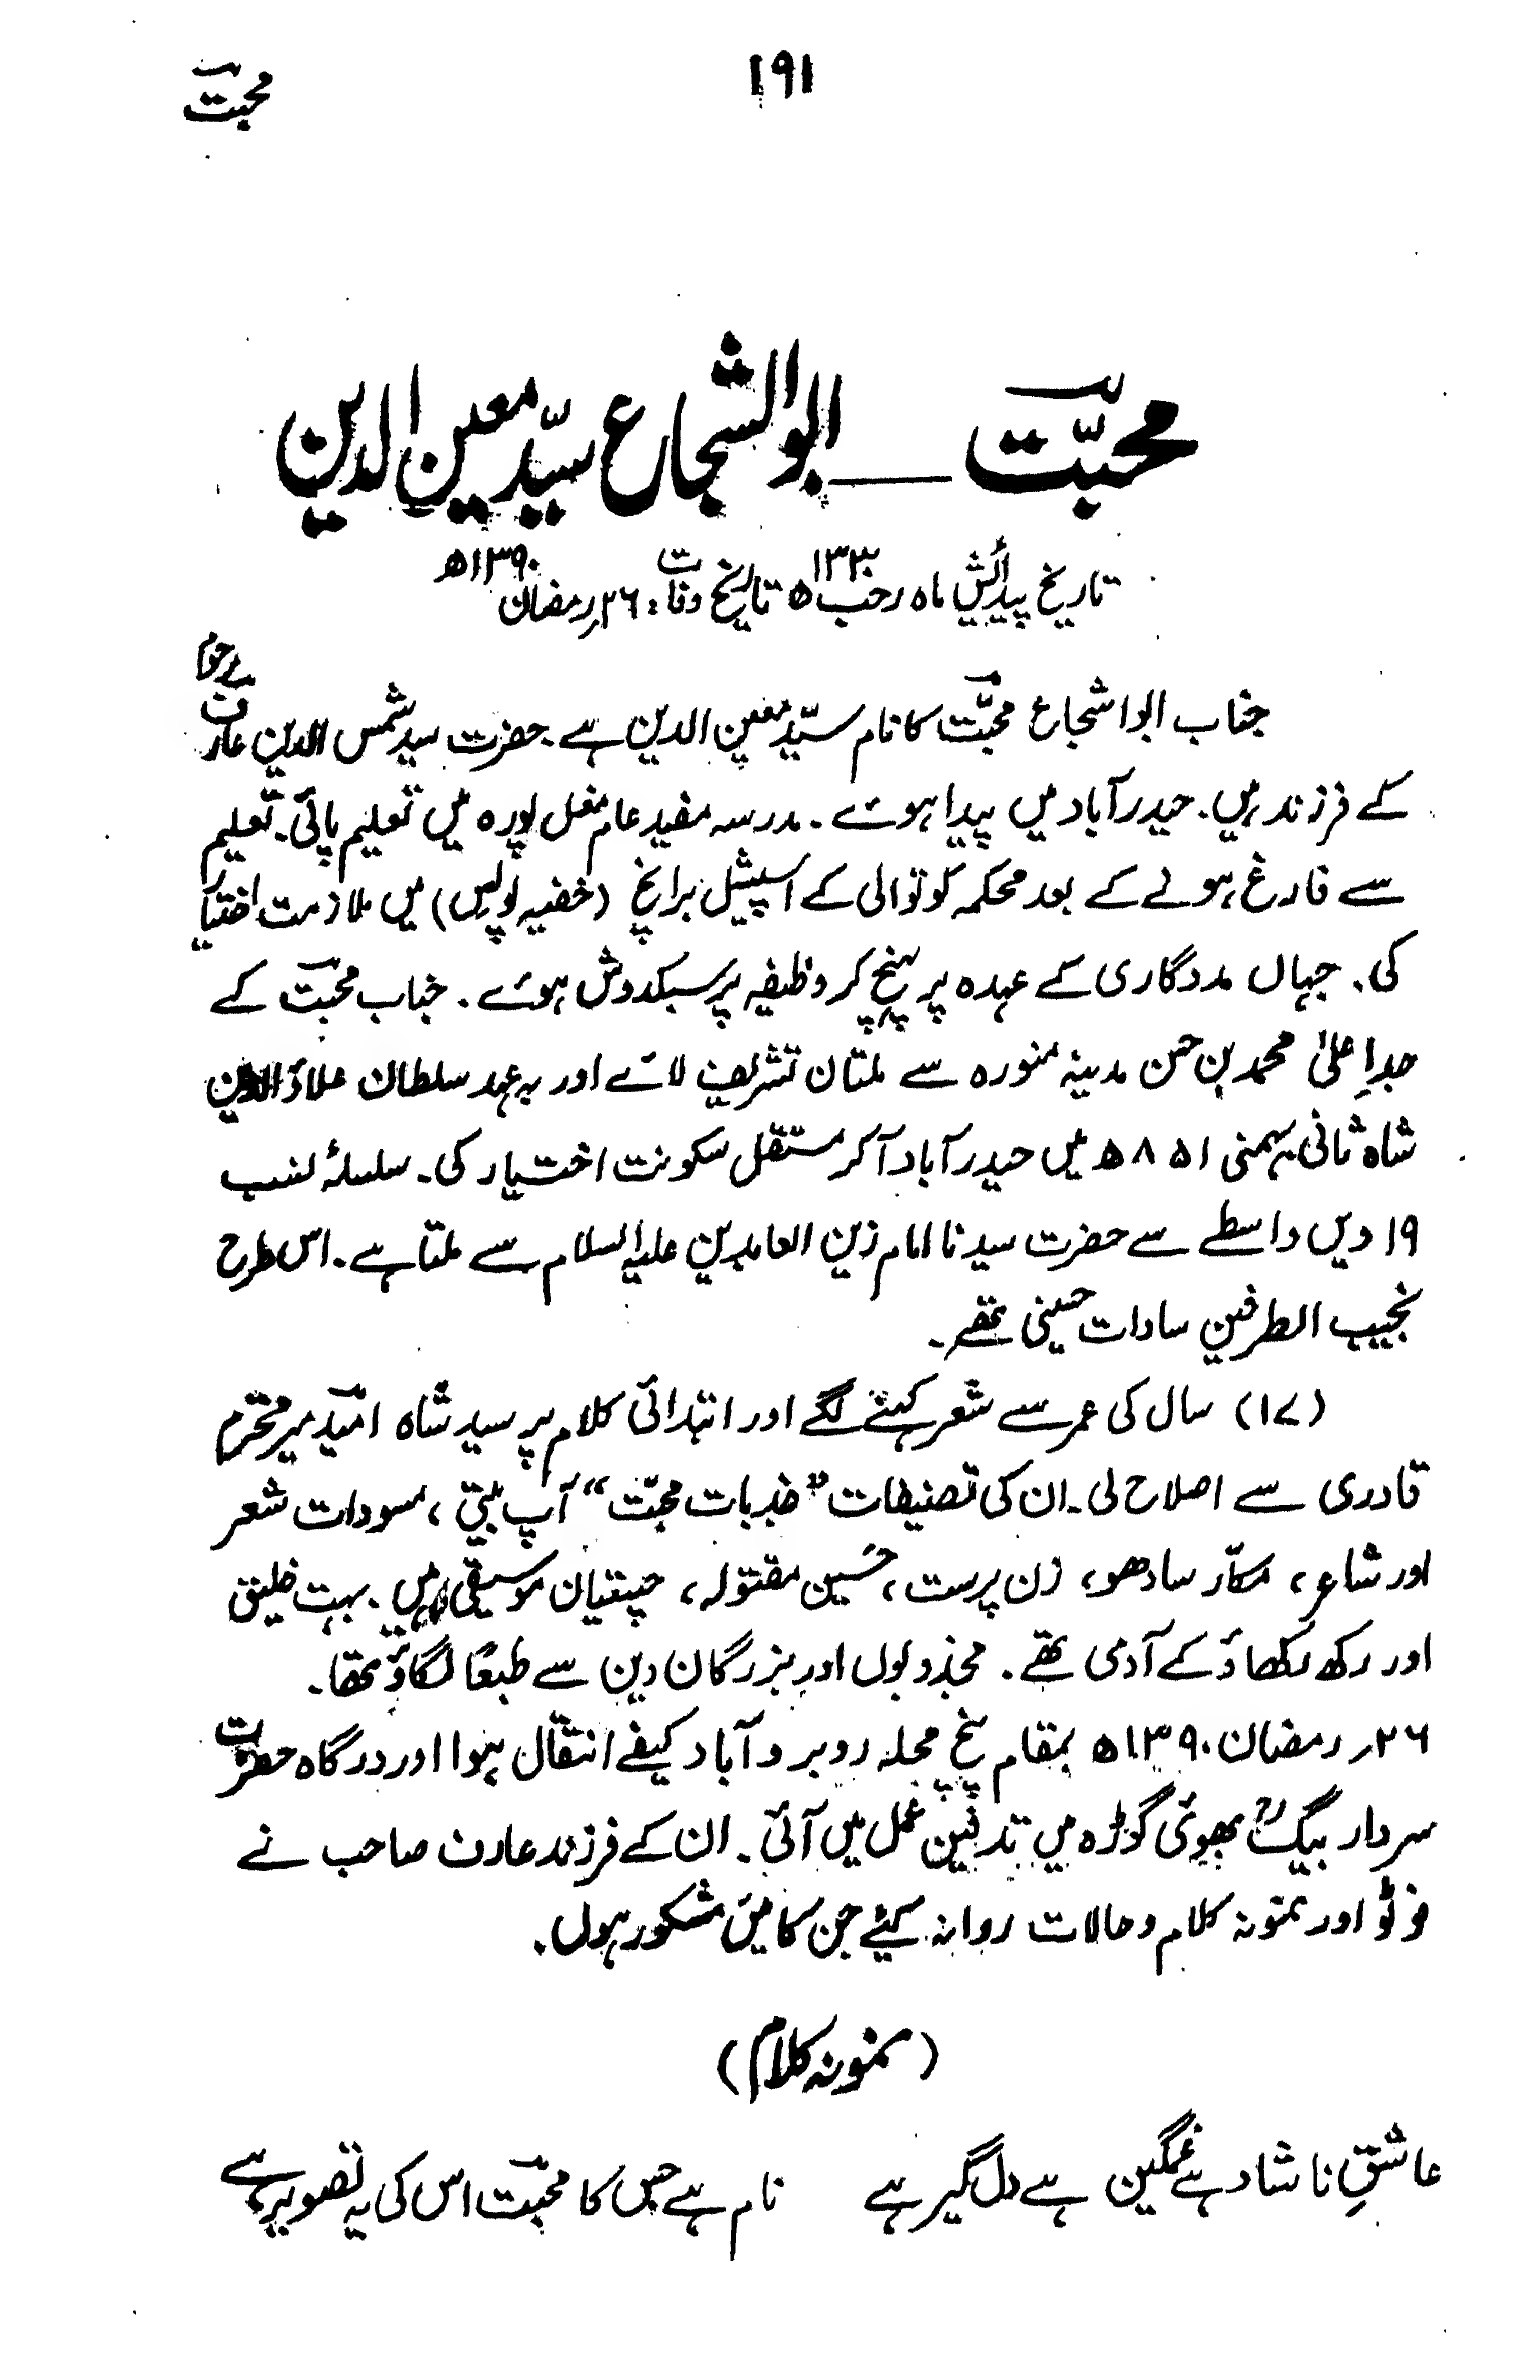 محبت
۱۹۱
محبّت ــــ ابوالشجاع سیّد معین الدین
تاریخ پیدائش ماہ رجب ۱۳۲۰ھ تاریخ وفات: ۲۶؍رمضان ۱۳۹۰ھ
جناب ابوا شجاع محبّت کا نام سیّد معین الدین ہے ۔ حضرت سید شمس الدین عارف مرحوم
کے فرزند ہیں۔ حیدرآباد میں پیدا ہوئے ۔ مدرسہ مفید عام مغل پورہ میں تعلیم پائی۔ تعلیم
سے فارغ ہونے کے بعد محکمہ کوتوالی کے اسپیشل برانچ (خفیہ پولیس) میں ملازمت اختیار
کی۔ جہاں مددگاری کے عہدہ پر پہنچ کر وظیفہ پر سبکدوش ہوئے ۔ جناب محبت کے
جدِاعلیٰ محمد بن حسن مدینہ منورہ سے ملتان تشریف لائے اور بہ عہد سلطان علاؤالدین
شاہ ثانی بہمنی ۸۵۱ھ میں حیدرآباد آکر مستقل سکونت اختیار کی۔ سلسلۂ نسب
۱۹ ویں واسطے سے حضرت سیدنا امام زین العابدین علیہ السلام سے ملتا ہے۔ اس طرح
نجیب الطرفین سادات حسینی تھے۔
(۱۷) سال کی عمر سے شعر کہنے لگے اور ابتدائی کلام پر سید شاہ امید میر محترم
قادری سے اصلاح لی۔ ان کی تصنیفات ”جذبات محبّت“ آپ بیتی ، مسودات شعر
اور شاعر ، مکّار سادھو، زن پرست ، حَسین مقتولہ ، چیستیان موسیقی ہیں ۔ بہت خلیق
اور رکھ رکھاؤ کے آدمی تھے ۔ مجذوبوں اور بزرگان دین سے طبعًا لگاؤ تھا۔
۲۶؍ رمضان ۱۳۹۰ھ بمقام پنچ محلہ روبرو آباد کیفے انتقال ہوا اور درگاہ حضرت
سردار بیگؒ بھوئی گوڑہ میں تدفین عمل میں آئی ۔ ان کے فرزند عارف صاحب نے
فوٹو اور نمونہ کلام و حالات روانہ کیئے جن کا میں مشکور ہوں۔
(نمونہ کلام)
عاشقِ ناشاد ہے غمگین ہے دل گیر ہے نام ہے جس کا محبت اس کی یہ تصویر ہے